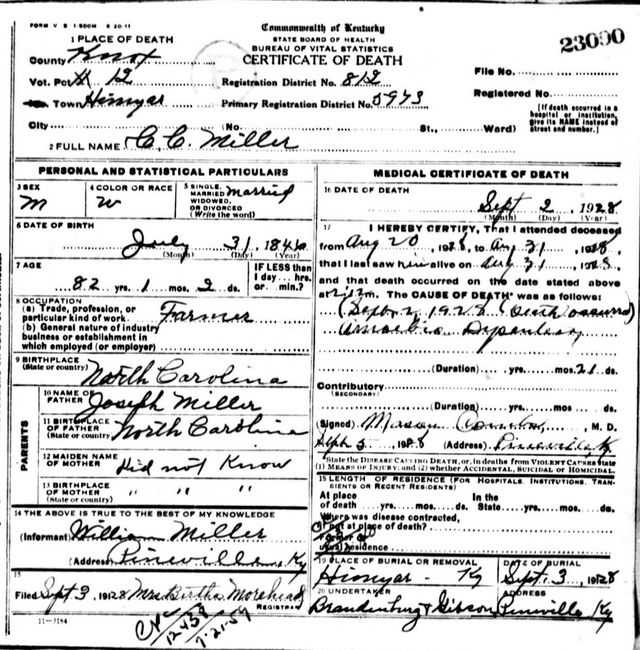 FORM V S 1-500M 6 20-11
Commonwealth of Kentucky
STATE BOARD OF HEALTH
BUREAU OF VITAL STATISTICS
CERTIFICATE OF DEATH
23090
1 PLACE OF DEATH
County Knox
Vot. Pct # 12
Town Himyar
City
Registration District No. 812
Primary Registration District No. 5973
(No. St., Ward)
File No.
Registered No.
[If death occurred in a hospital or institution, give its NAME instead of street and number.]
2 FULL NAME C. C. Miller
PERSONAL AND STATISTICAL PARTICULARS
3 SEX
M
4 COLOR OR RACE
W
5 SINGLE, MARRIED, WIDOWED, OR DIVORCED
(Write the word)
Married
6 DATE OF BIRTH
July 31, 1846
(Month) (Day) (Year)
7 AGE
82 yrs. 1 mos. 2 ds.
IF LESS then 1 day... hrs. or min.?
8 OCCUPATION
(a) Trade, profession, or particular kind of work. Farmer
(b) General nature of industry business or establishment in which employed (or employer)
9 BIRTHPLACE
(State or country) North Carolina
PARENTS
10 NAME OF FATHER Joseph Miller
11 BIRTHPLACE OF FATHER
(State or country) North Carolina
12 MAIDEN NAME OF MOTHER Did not Know
13 BIRTHPLACE OF MOTHER
(State or country) " " "
14 THE ABOVE IS TRUE TO THE BEST OF MY KNOWLEDGE
(Informant) William Miller
(Address) Pineville, Ky
15
Filed Sept 3, 1928 Mrs Bertha Morehead
REGISTRAR
11-3184
12458
7-21-59
MEDICAL CERTIFICATE OF DEATH
16 DATE OF DEATH
Sept 2, 1928
(Month) (Day) (Year)
17 I HEREBY CERTIFY, That I attended deceased
from Aug 20, 1928, to Aug 31, 1928,
that I last saw him alive on Aug 31, 1928,
and that death occurred on the date stated above
at m. The CAUSE OF DEATH* was as follows:
(Sept 2, 1928 Death occurred)
Amoebic Dysentery
(Duration) yrs. mos. 21 ds.
Contributory
(SECONDARY)
(Duration) yrs. mos. ds.
(Signed) Mason M. D.
Sept 3, 1928 (Address) Pineville Ky.
*State the DISEASE CAUSING DEATH, or, in deaths from VIOLENT CAUSES state (1) MEANS OF INJURY; and (2) whether ACCIDENTAL, SUICIDAL or HOMICIDAL.
18 LENGTH OF RESIDENCE (FOR HOSPITALS, INSTITUTIONS, TRANSIENTS OR RECENT RESIDENTS)
At place of death yrs. mos. ds. In the State yrs. mos. ds.
Where was disease contracted, if not at place of death?
Former or usual residence
19 PLACE OF BURIAL OR REMOVAL
Himyar - Ky
DATE OF BURIAL
Sept. 3, 1928
20 UNDERTAKER
Brandenburg & Gibson
ADDRESS
Pineville Ky